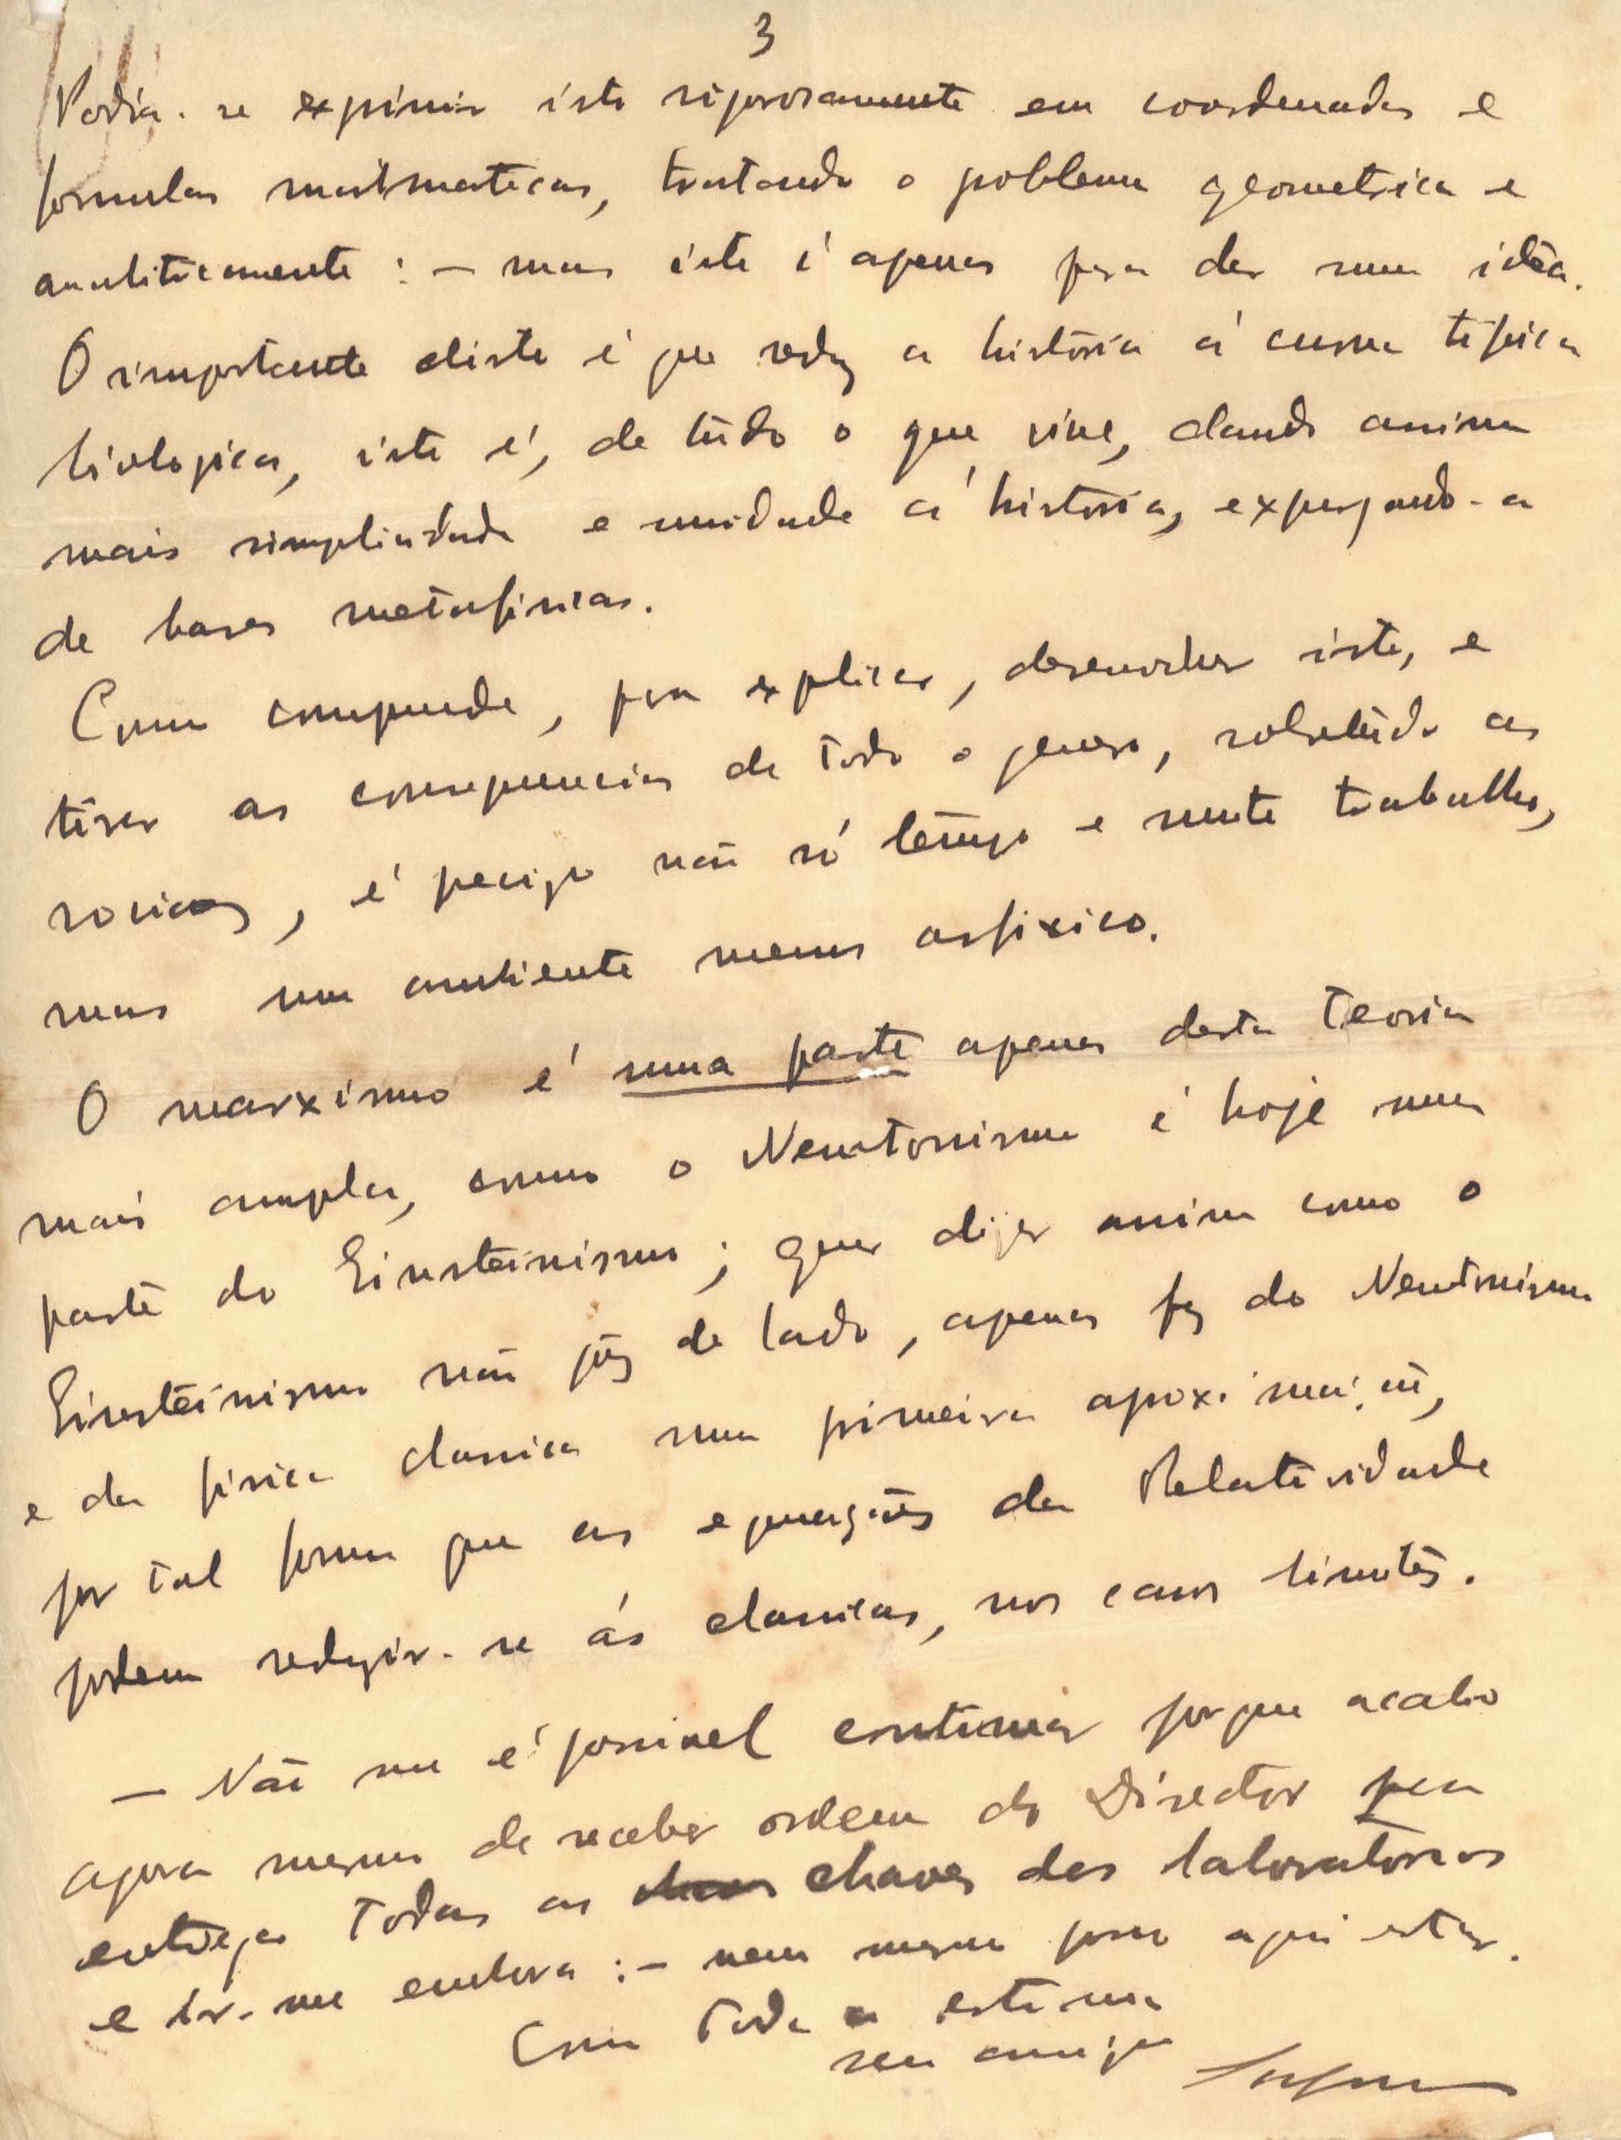 3
Podia-se exprimir isto rigorosamente em coordenadas e
formulas matematicas, tratando o problema geometrica e
analiticamente : – mas isto é apenas para dar uma idêa.
O importante disto é que reduz a história á curva tipica
biologica, isto é, de tudo o que vive, dando assim
mais simplicidade e unidade á história, expurgando-a
de bases metafisicas.
Como compreende, para explicar, desenvolver isto, e
tirar as consequencias de todo o genero, sobretudo as
sociais, é preciso não só tempo e muito trabalho,
mas um ambiente menos asfixico.
O marxismo é uma parte apenas desta teoria
mais ampla, como o Newtonismo é hoje uma
parte do Einsteinismo ; quer dizer assim como o
Einsteinismo não pôz de lado, apenas fez do Newtonismo
e da fisica classica uma primeira aproximação,
por tal forma que as equações da Relatividade
podem reduzir-se ás classicas, nos casos limites.
– Não me é possivel continuar porque acabo
agora mesmo de receber ordem do Director para
entregar todas as chaves dos laboratorios
e ir-me embora : – nem mesmo posso aqui estar.
Com toda a estima
seu amigo